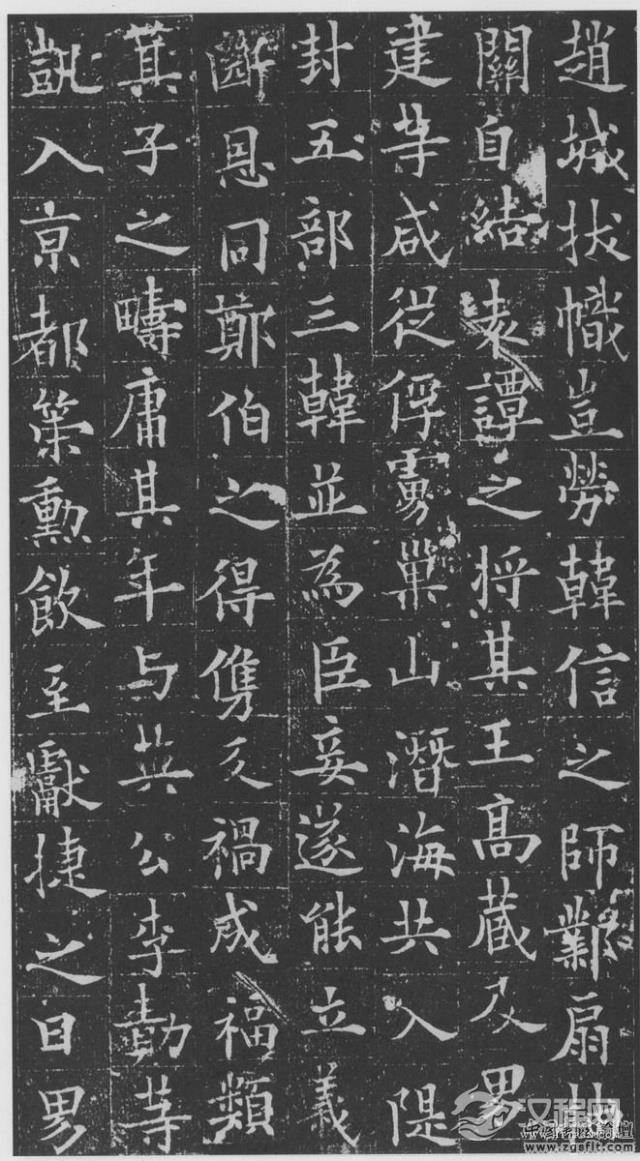 趙城拔幟豈勞韓信之師鄴扇抽
關自結袁譚之將其王高藏及男
建等咸從俘虜巢山潛海共入隄
封五部三韓並為臣妾遂能立義
斷恩同鄭伯之得儁反禍成福類
箕子之疇庸其年与英公李勣等
凱入京都策勳飲至獻捷之日男
汉程网
www.zgsflt.com